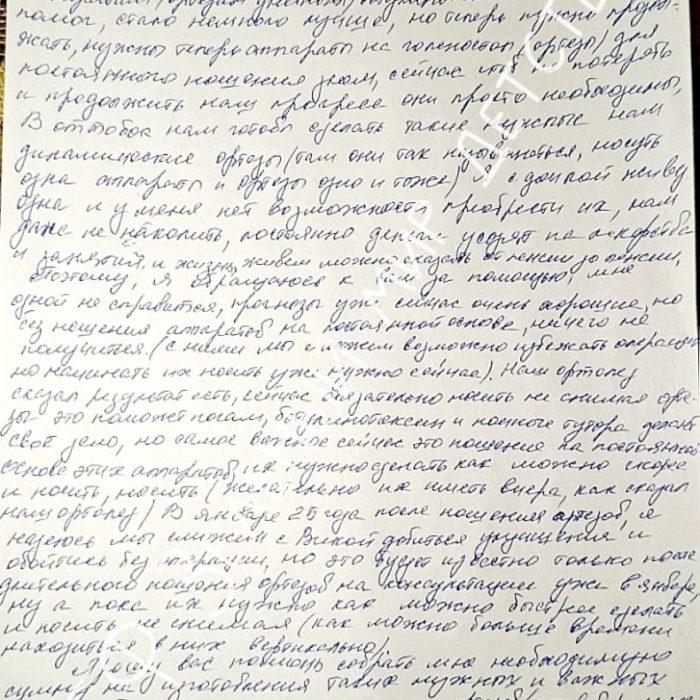 помог, стало немного лучше, но теперь нужно продол-
жать, нужны теперь аппараты на голеностоп (ортезы) для
постоянного ношения их, сейчас чтоб не потерять
и продолжить наш прогресс они просто необходимы,
В оттобок нам готовы сделать такие нужные нам
динамические ортезы (там они так называются, носуть
одна аппараты и ортезы одно и тоже) я с дочкой живу
одна и у меня нет возможности преобрести их, нам
даже не накопить, постоянно деньги уходят на лекарства
и занятия, и жизнь, живем можно сказать от пенсии до пенсии,
Поэтому, я обращаюсь к Вам за помощью, мне
одной не справится, прогнозы уже сейчас очень хорошие, но
без ношения аппаратов на постоянной основе, ничего не
получиться. (с ними мы сможем возможно избежать операции
но начинать их носить уже нужно сейчас). Нам ортопед
сказал результат есть, сейчас обязательно носить не снимая орте-
зы это поможет ногам, ботулинотоксин и ночные тутора делают
своё дело, но самое важное сейчас это ношение на постоянной
основе этих аппаратов, их нужно сделать как можно скорее
и носить, носить (желательно их иметь вчера, как сказал
наш ортопед) В январе 25 года после ношения ортезов, я
надеюсь мы сможем с Викой добиться улучшения и
обойтись без операции, но это будет известно только после
длительного ношения ортезов на консультации уже в январе,
ну а пока их нужно как можно быстрее сделать
и носить не снимая (как можно больше времени
находиться в них вертикально).
Прошу вас помощь собрать мне необходимую
сумму на изготовления таких нужных и важных
МИР ДЕТСТВ